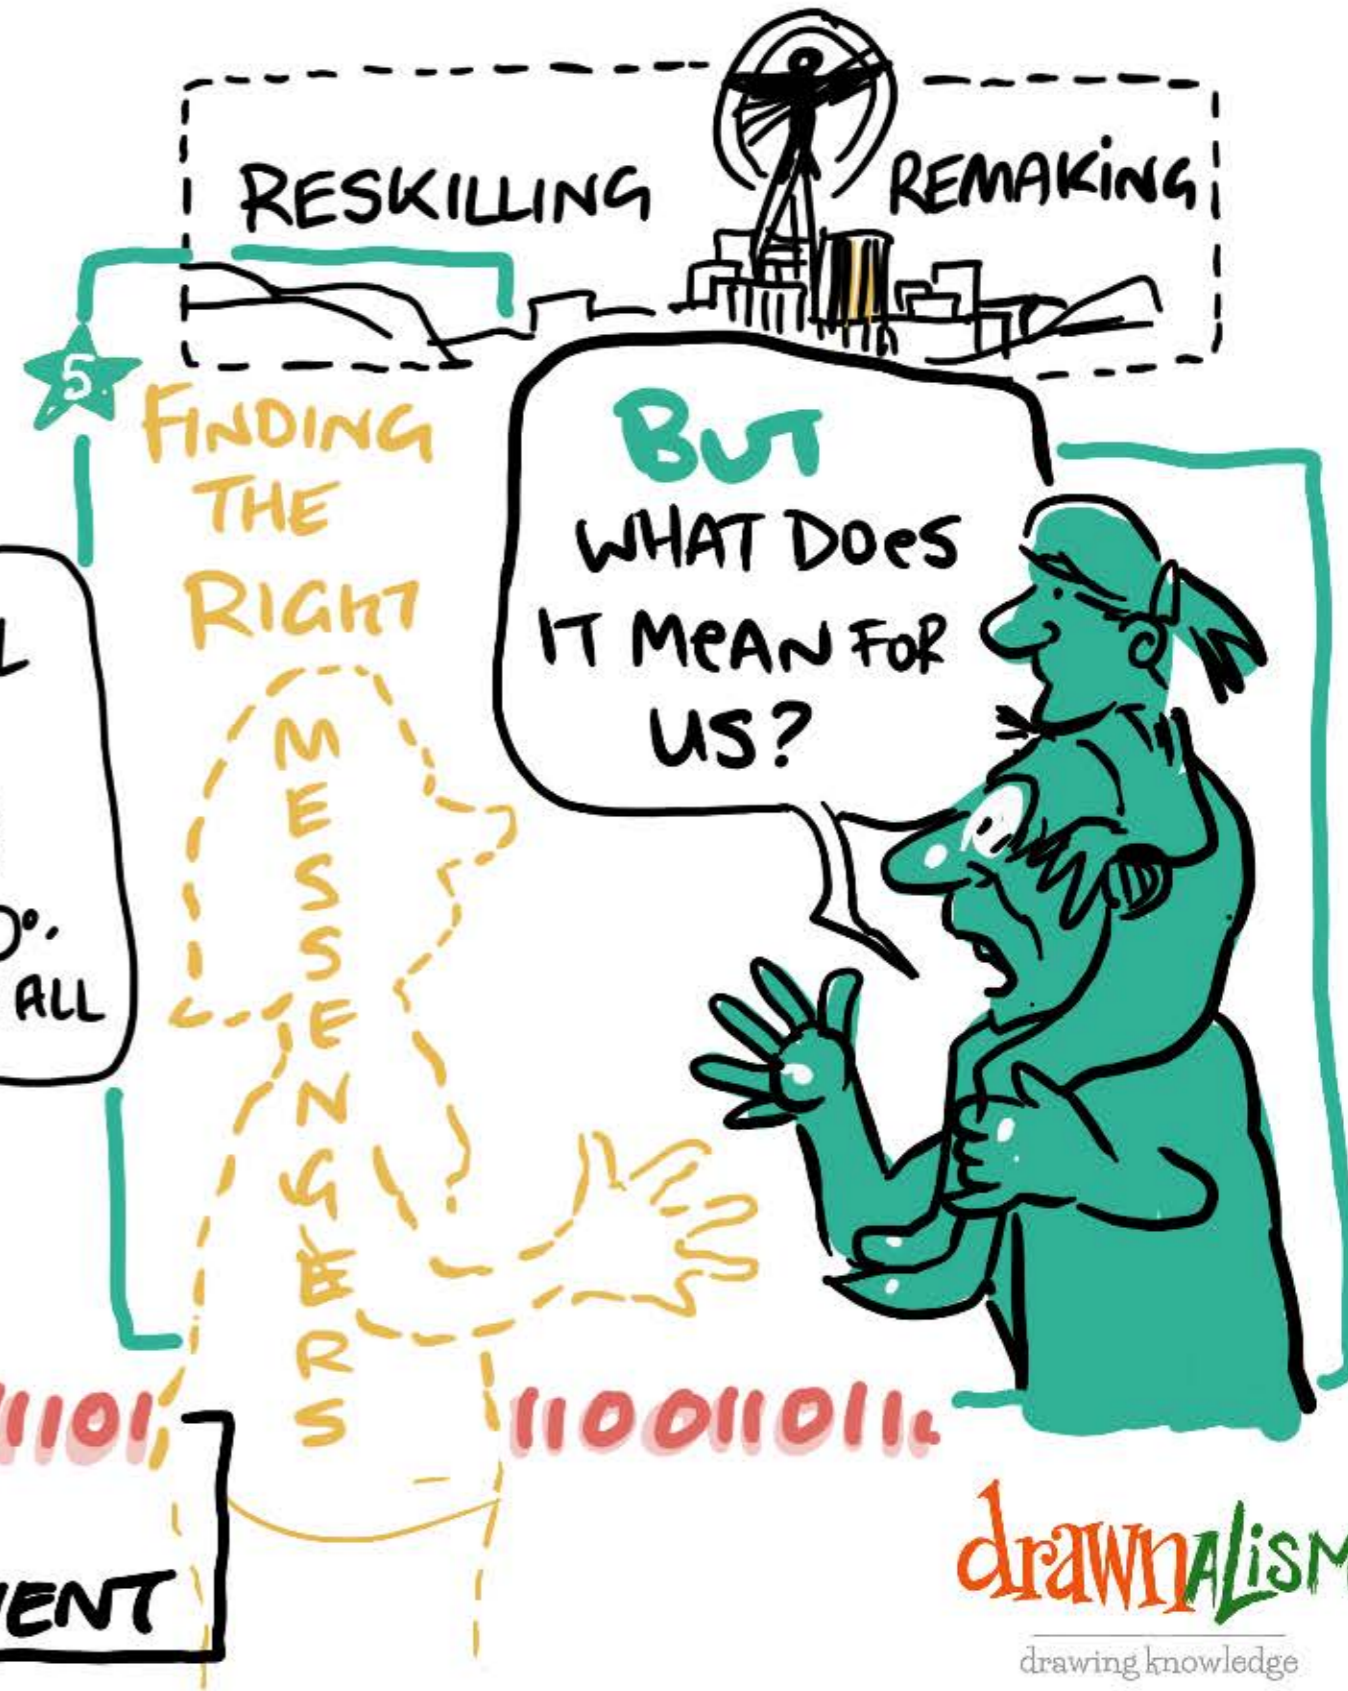 RESKILLING
REMAKING
5
FINDING
THE
RIGHT
MESSENGERS
BUT
WHAT DOES
IT MEAN FOR
US?
L
0%
ALL
11101
1100110111
ENT
drawnalism
drawing knowledge